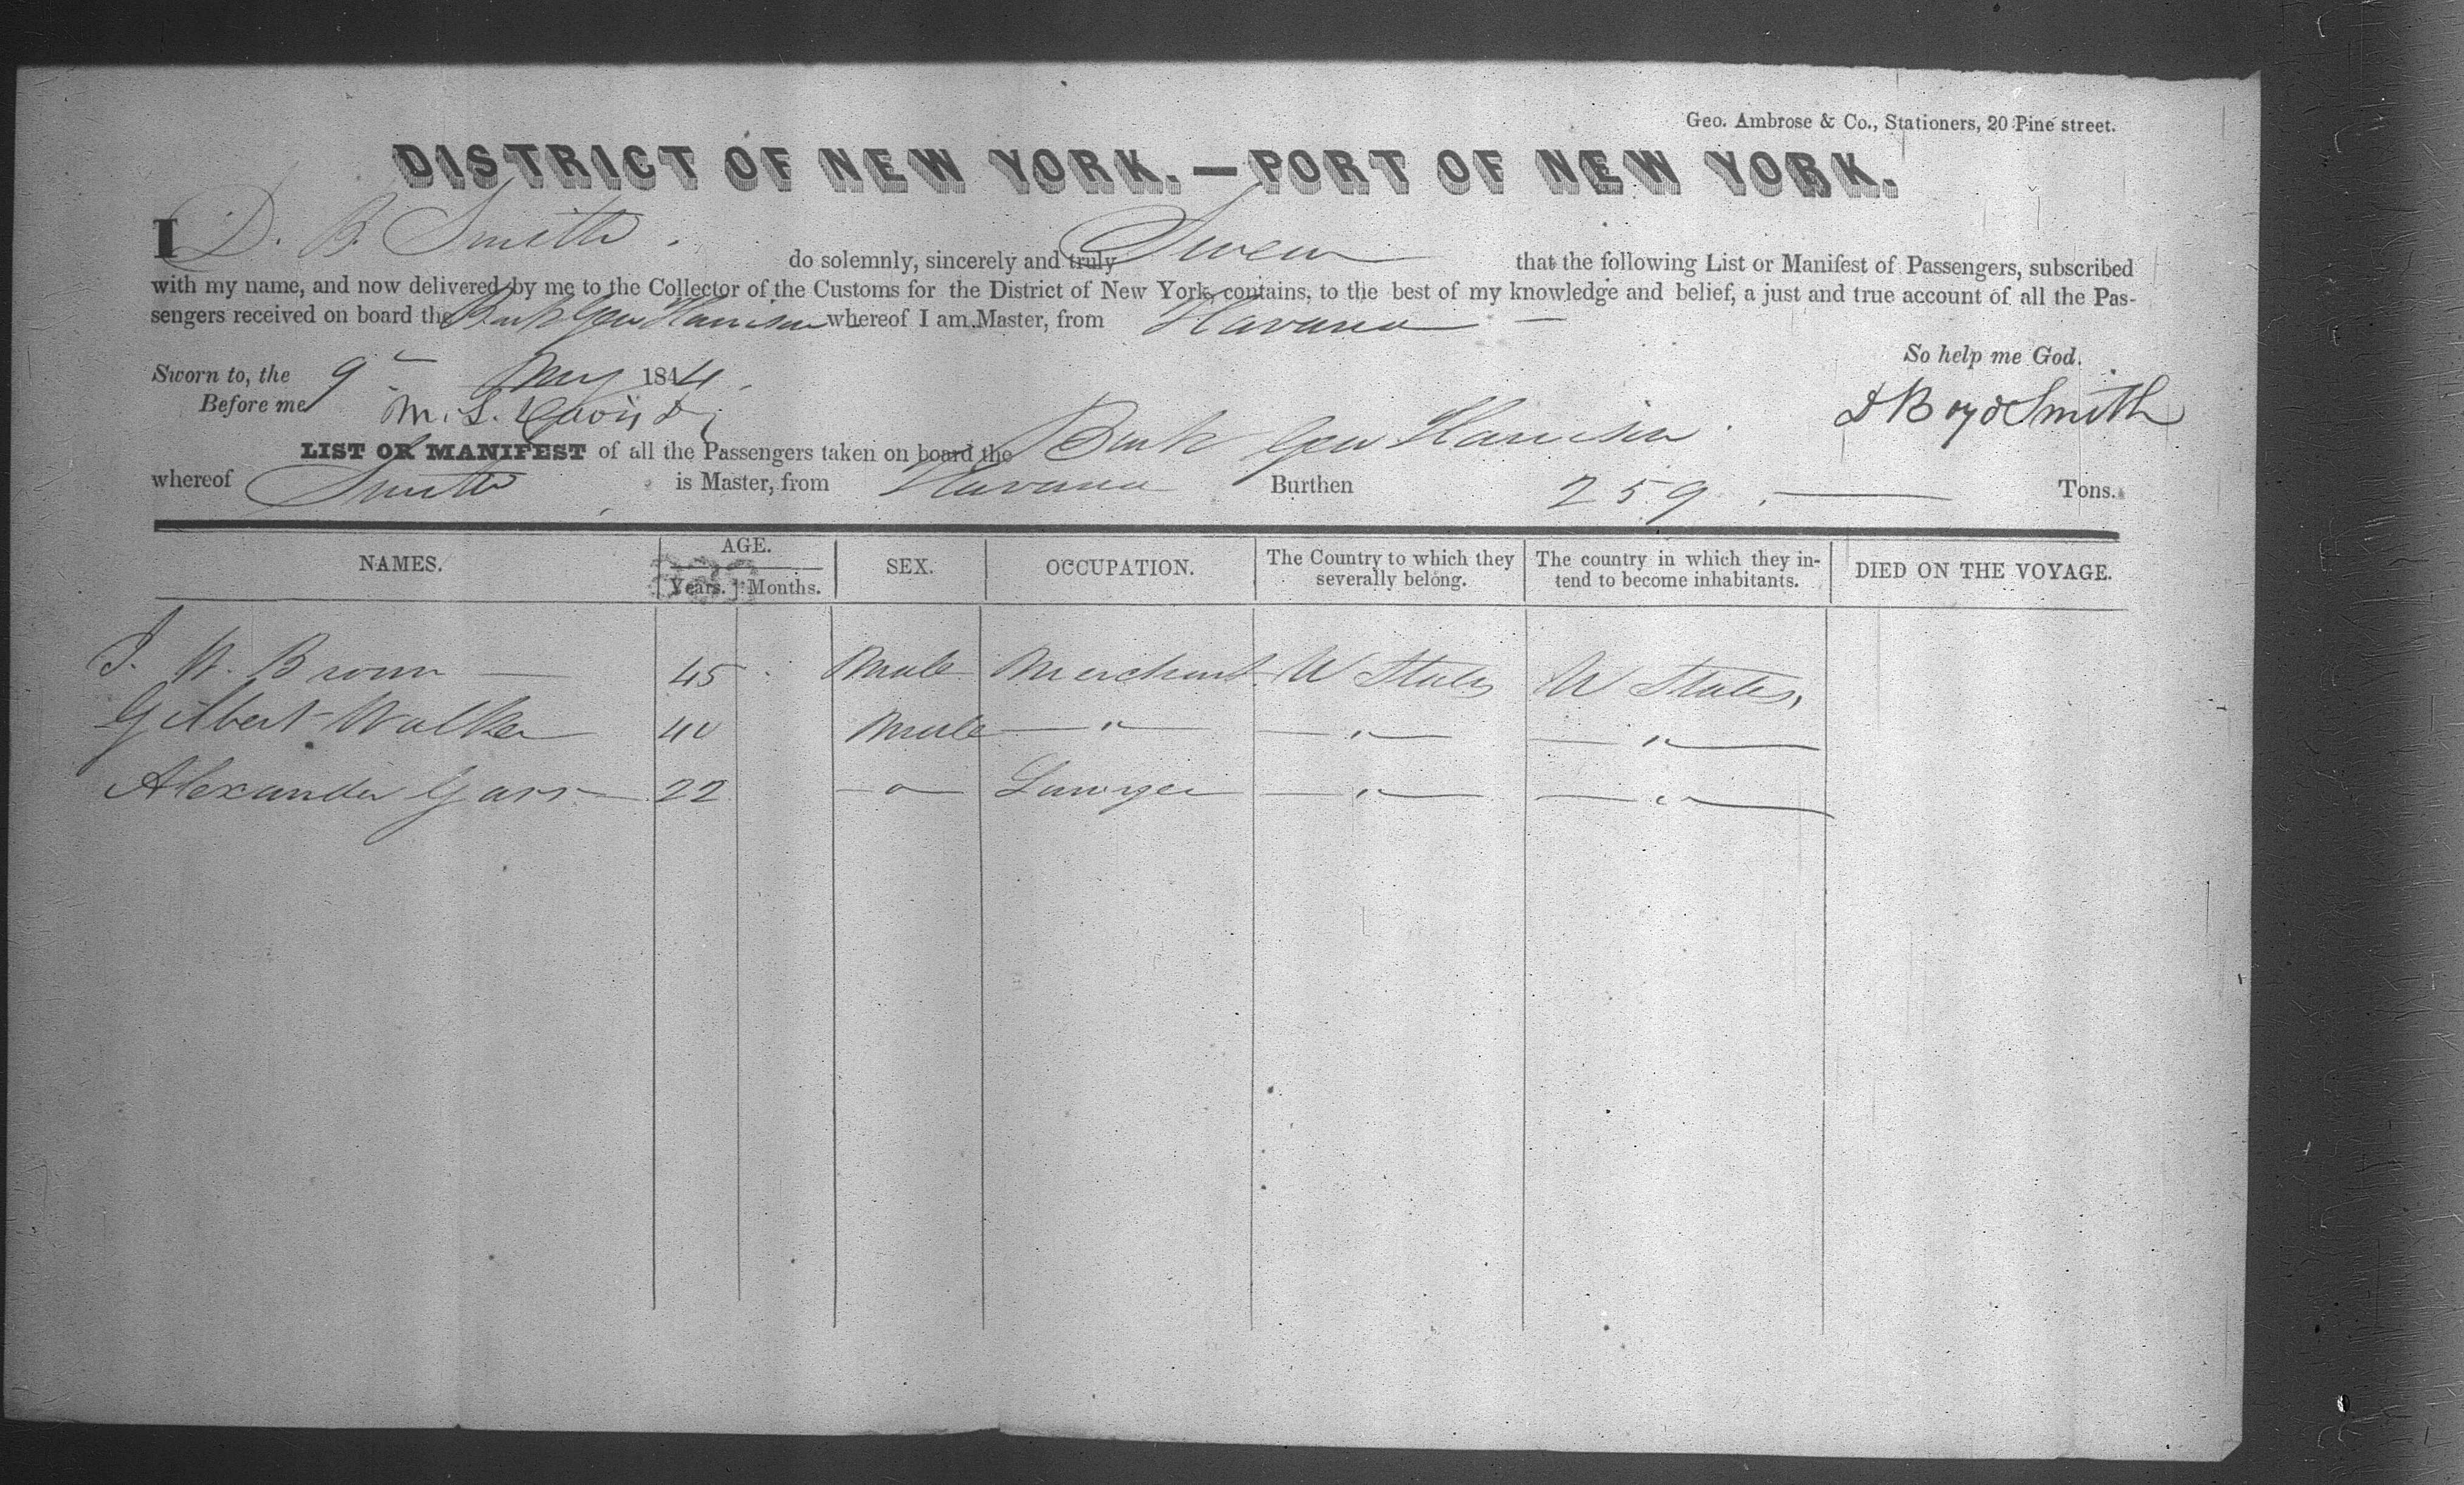 Geo. Ambrose & Co., Stationers, 20 Pine street.
DISTRICT OF NEW YORK.—PORT OF NEW YORK.
I D. B. Smith. do solemnly, sincerely and truly Swear that the following List or Manifest of Passengers, subscribed
with my name, and now delivered by me to the Collector of the Customs for the District of New York, contains, to the best of my knowledge and belief, a just and true account of all the Pas-
sengers received on board the Bark Gen Harrison whereof I am Master, from Havana —
So help me God.
Sworn to, the 9 May 1844.
Before me M. L.
D Boyd Smith
LIST OR MANIFEST of all the Passengers taken on board the Bark Gen Harrison.
whereof Smith is Master, from Havana Burthen 259. — Tons.
NAMES. AGE. Years. Months. SEX. OCCUPATION. The Country to which they severally belong. The country in which they in-tend to become inhabitants. DIED ON THE VOYAGE.
Brown — 45 Male Merchant. U States U States,
Gilbert Walker 40 Male — " — — " — — " —
Alexander 22 — " — Lawyer — " — — " —